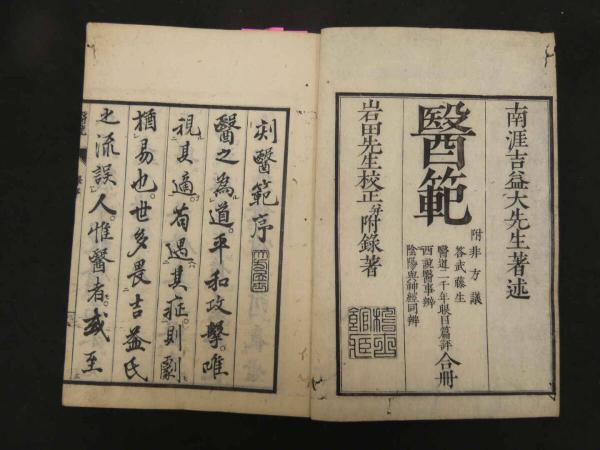 南涯吉益大先生著述
醫範
附非方議
答武藤生
醫道二千年眼目篇評
西説醫事辨
陰陽與神經同辨
合冊
岩田先生校正并附錄著
刻醫範序
醫之為道平和攻擊唯
視其適苟遇其症則劇
猶易也世多畏吉益氏
之流誤人惟醫者或至